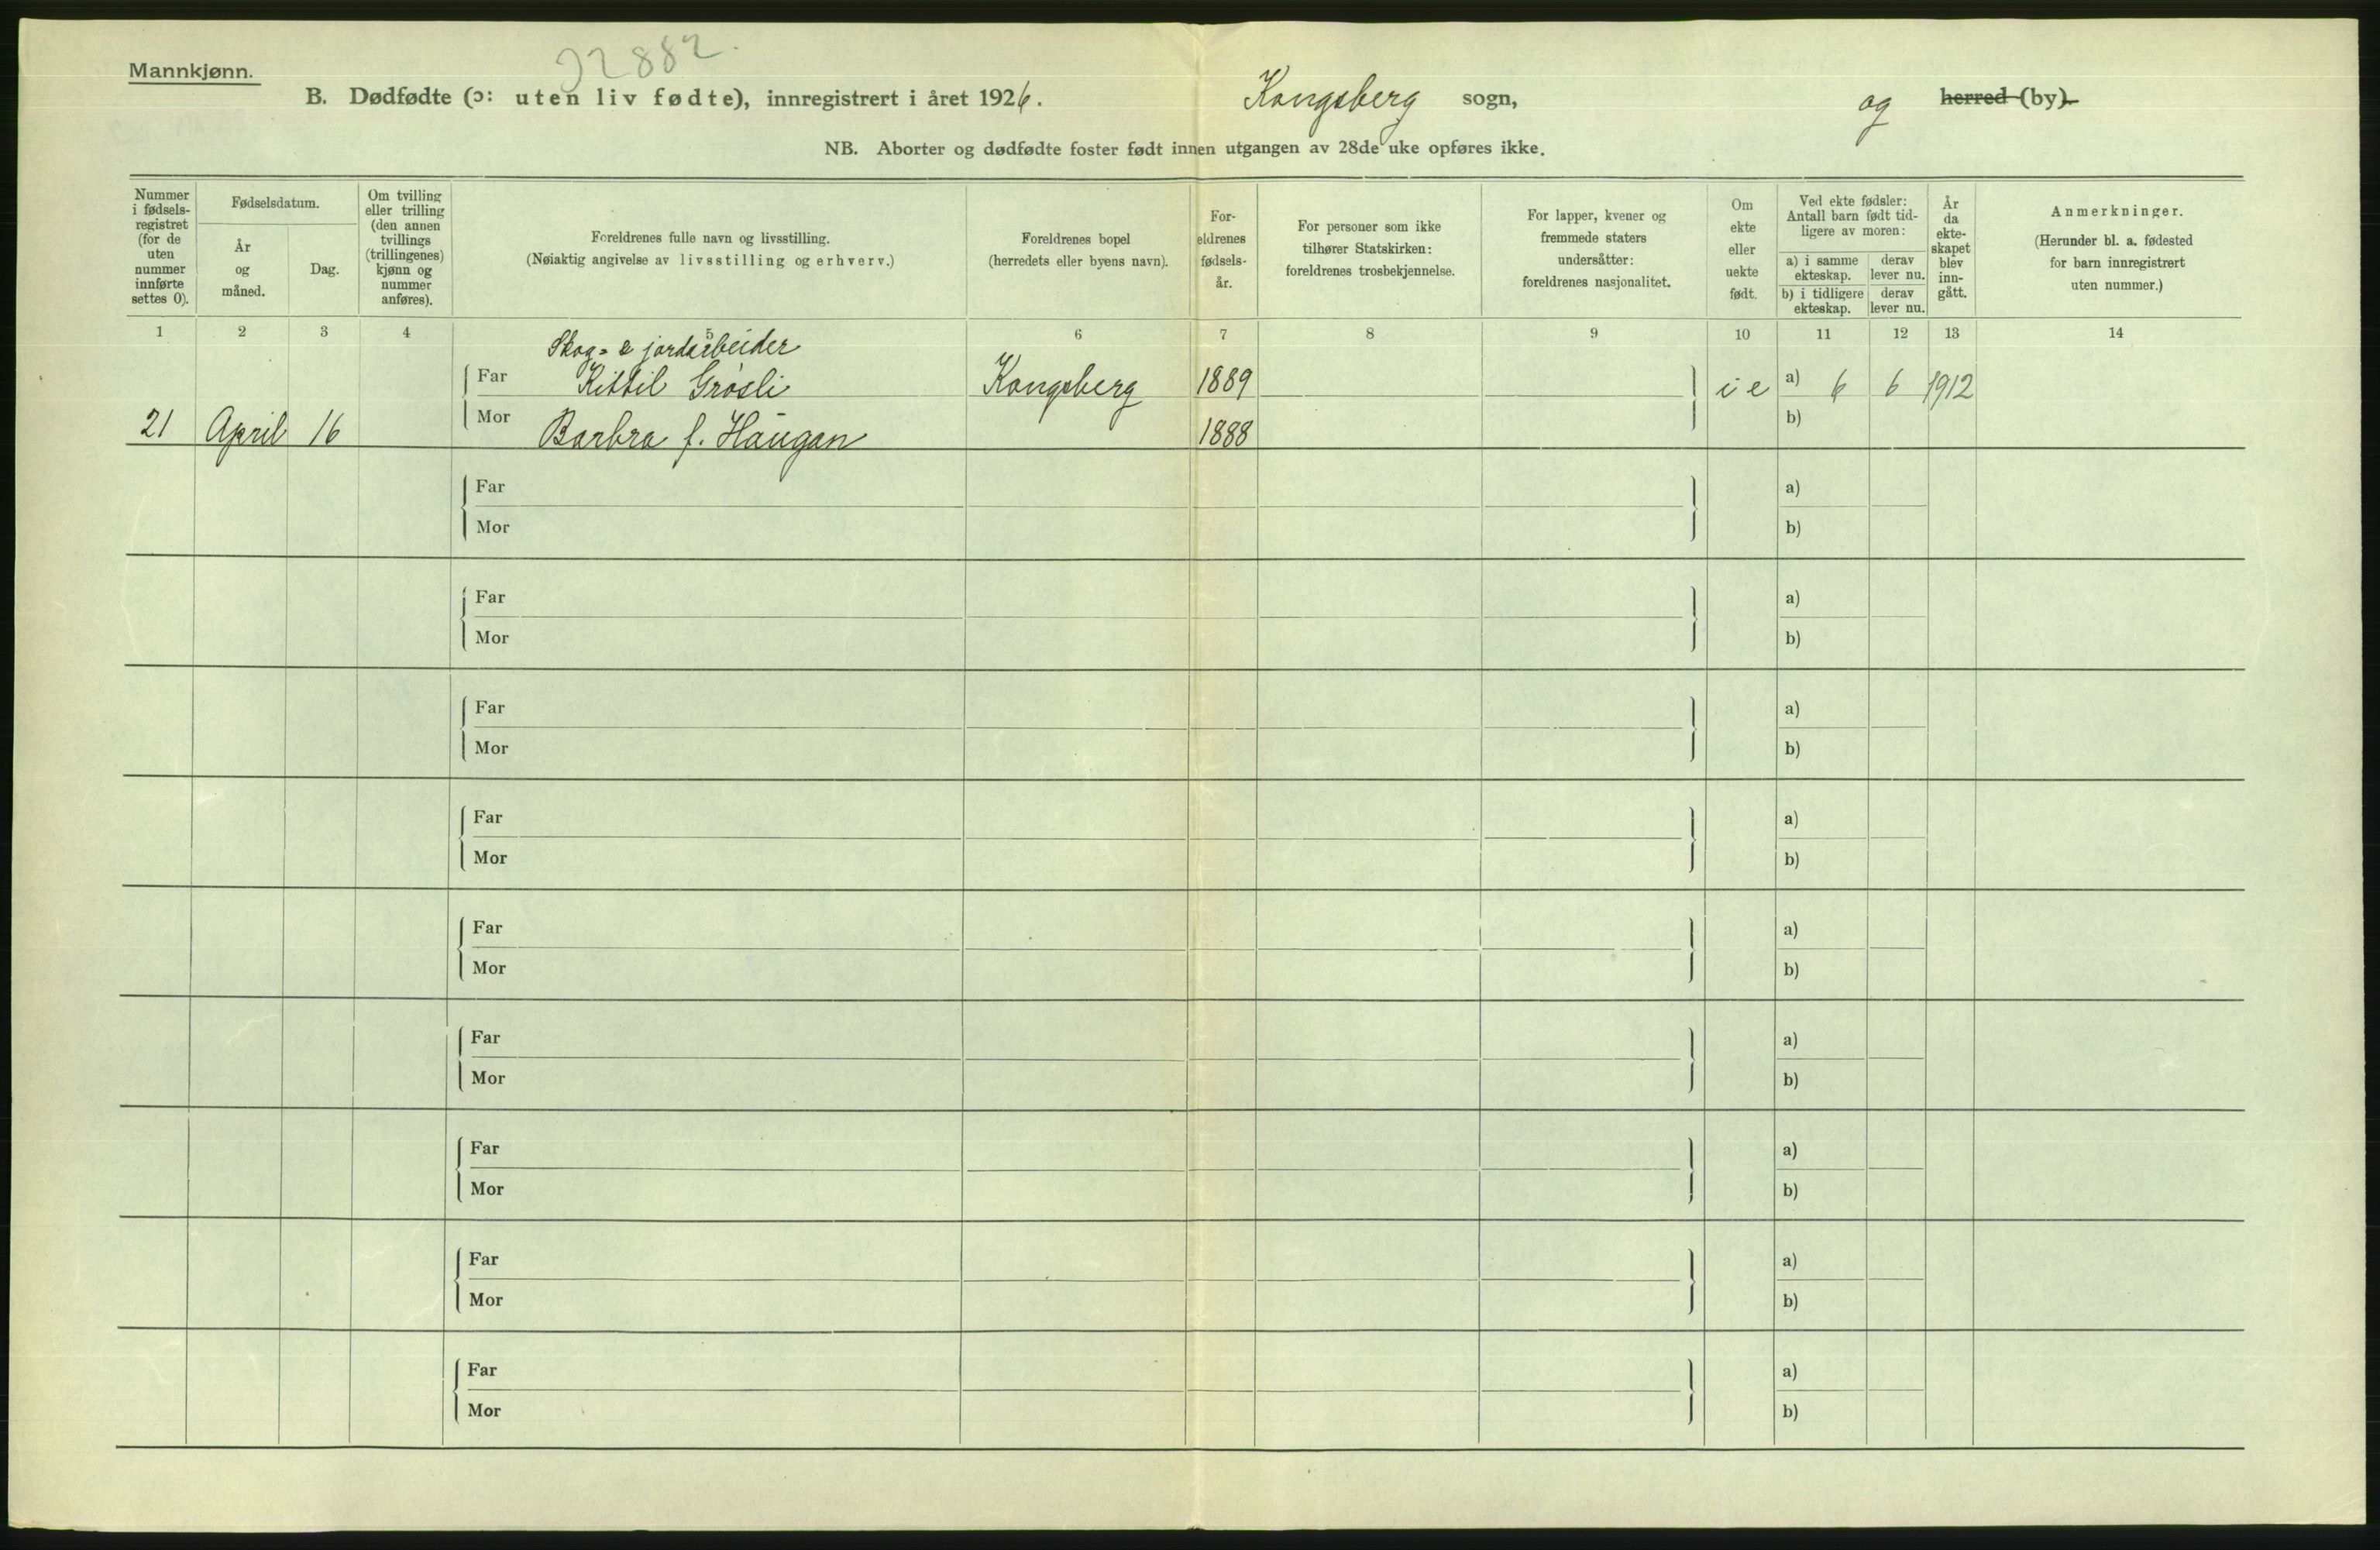 22882.
Mannkjønn.
B. Dødfødte (ɔ: uten liv fødte), innregistrert i året 1926. Kongsberg sogn, og herred (by).
NB. Aborter og dødfødte foster født innen utgangen av 28de uke opføres ikke.
Nummer i fødsels-registret (for de uten nummer innførte settes 0).
Fødselsdatum.
År og måned.
Dag.
Om tvilling eller trilling (den annen tvillings (trillingenes) kjønn og nummer anføres).
Foreldrenes fulle navn og livsstilling.
(Nøiaktig angivelse av livsstilling og erhverv.)
Foreldrenes bopel
(herredets eller byens navn).
For-eldrenes fødsels-år.
For personer som ikke tilhører Statskirken: foreldrenes trosbekjennelse.
For lapper, kvener og fremmede staters undersåtter: foreldrenes nasjonalitet.
Om ekte eller uekte født.
Ved ekte fødsler: Antall barn født tid-ligere av moren:
a) i samme ekteskap. derav lever nu.
b) i tidligere ekteskap. derav lever nu.
År da ekte-skapet blev inn-gått.
Anmerkninger.
(Herunder bl. a. fødested for barn innregistrert uten nummer.)
1 2 3 4 5 6 7 8 9 10 11 12 13 14
Skog- & jordarbeider
Far Kittil Gråsli Kongsberg 1889 i e a) 6 6 1912
21 April 16 Mor Barbra f. Haugan 1888 b)
Far a)
Mor b)
Far a)
Mor b)
Far a)
Mor b)
Far a)
Mor b)
Far a)
Mor b)
Far a)
Mor b)
Far a)
Mor b)
Far a)
Mor b)
Far a)
Mor b)